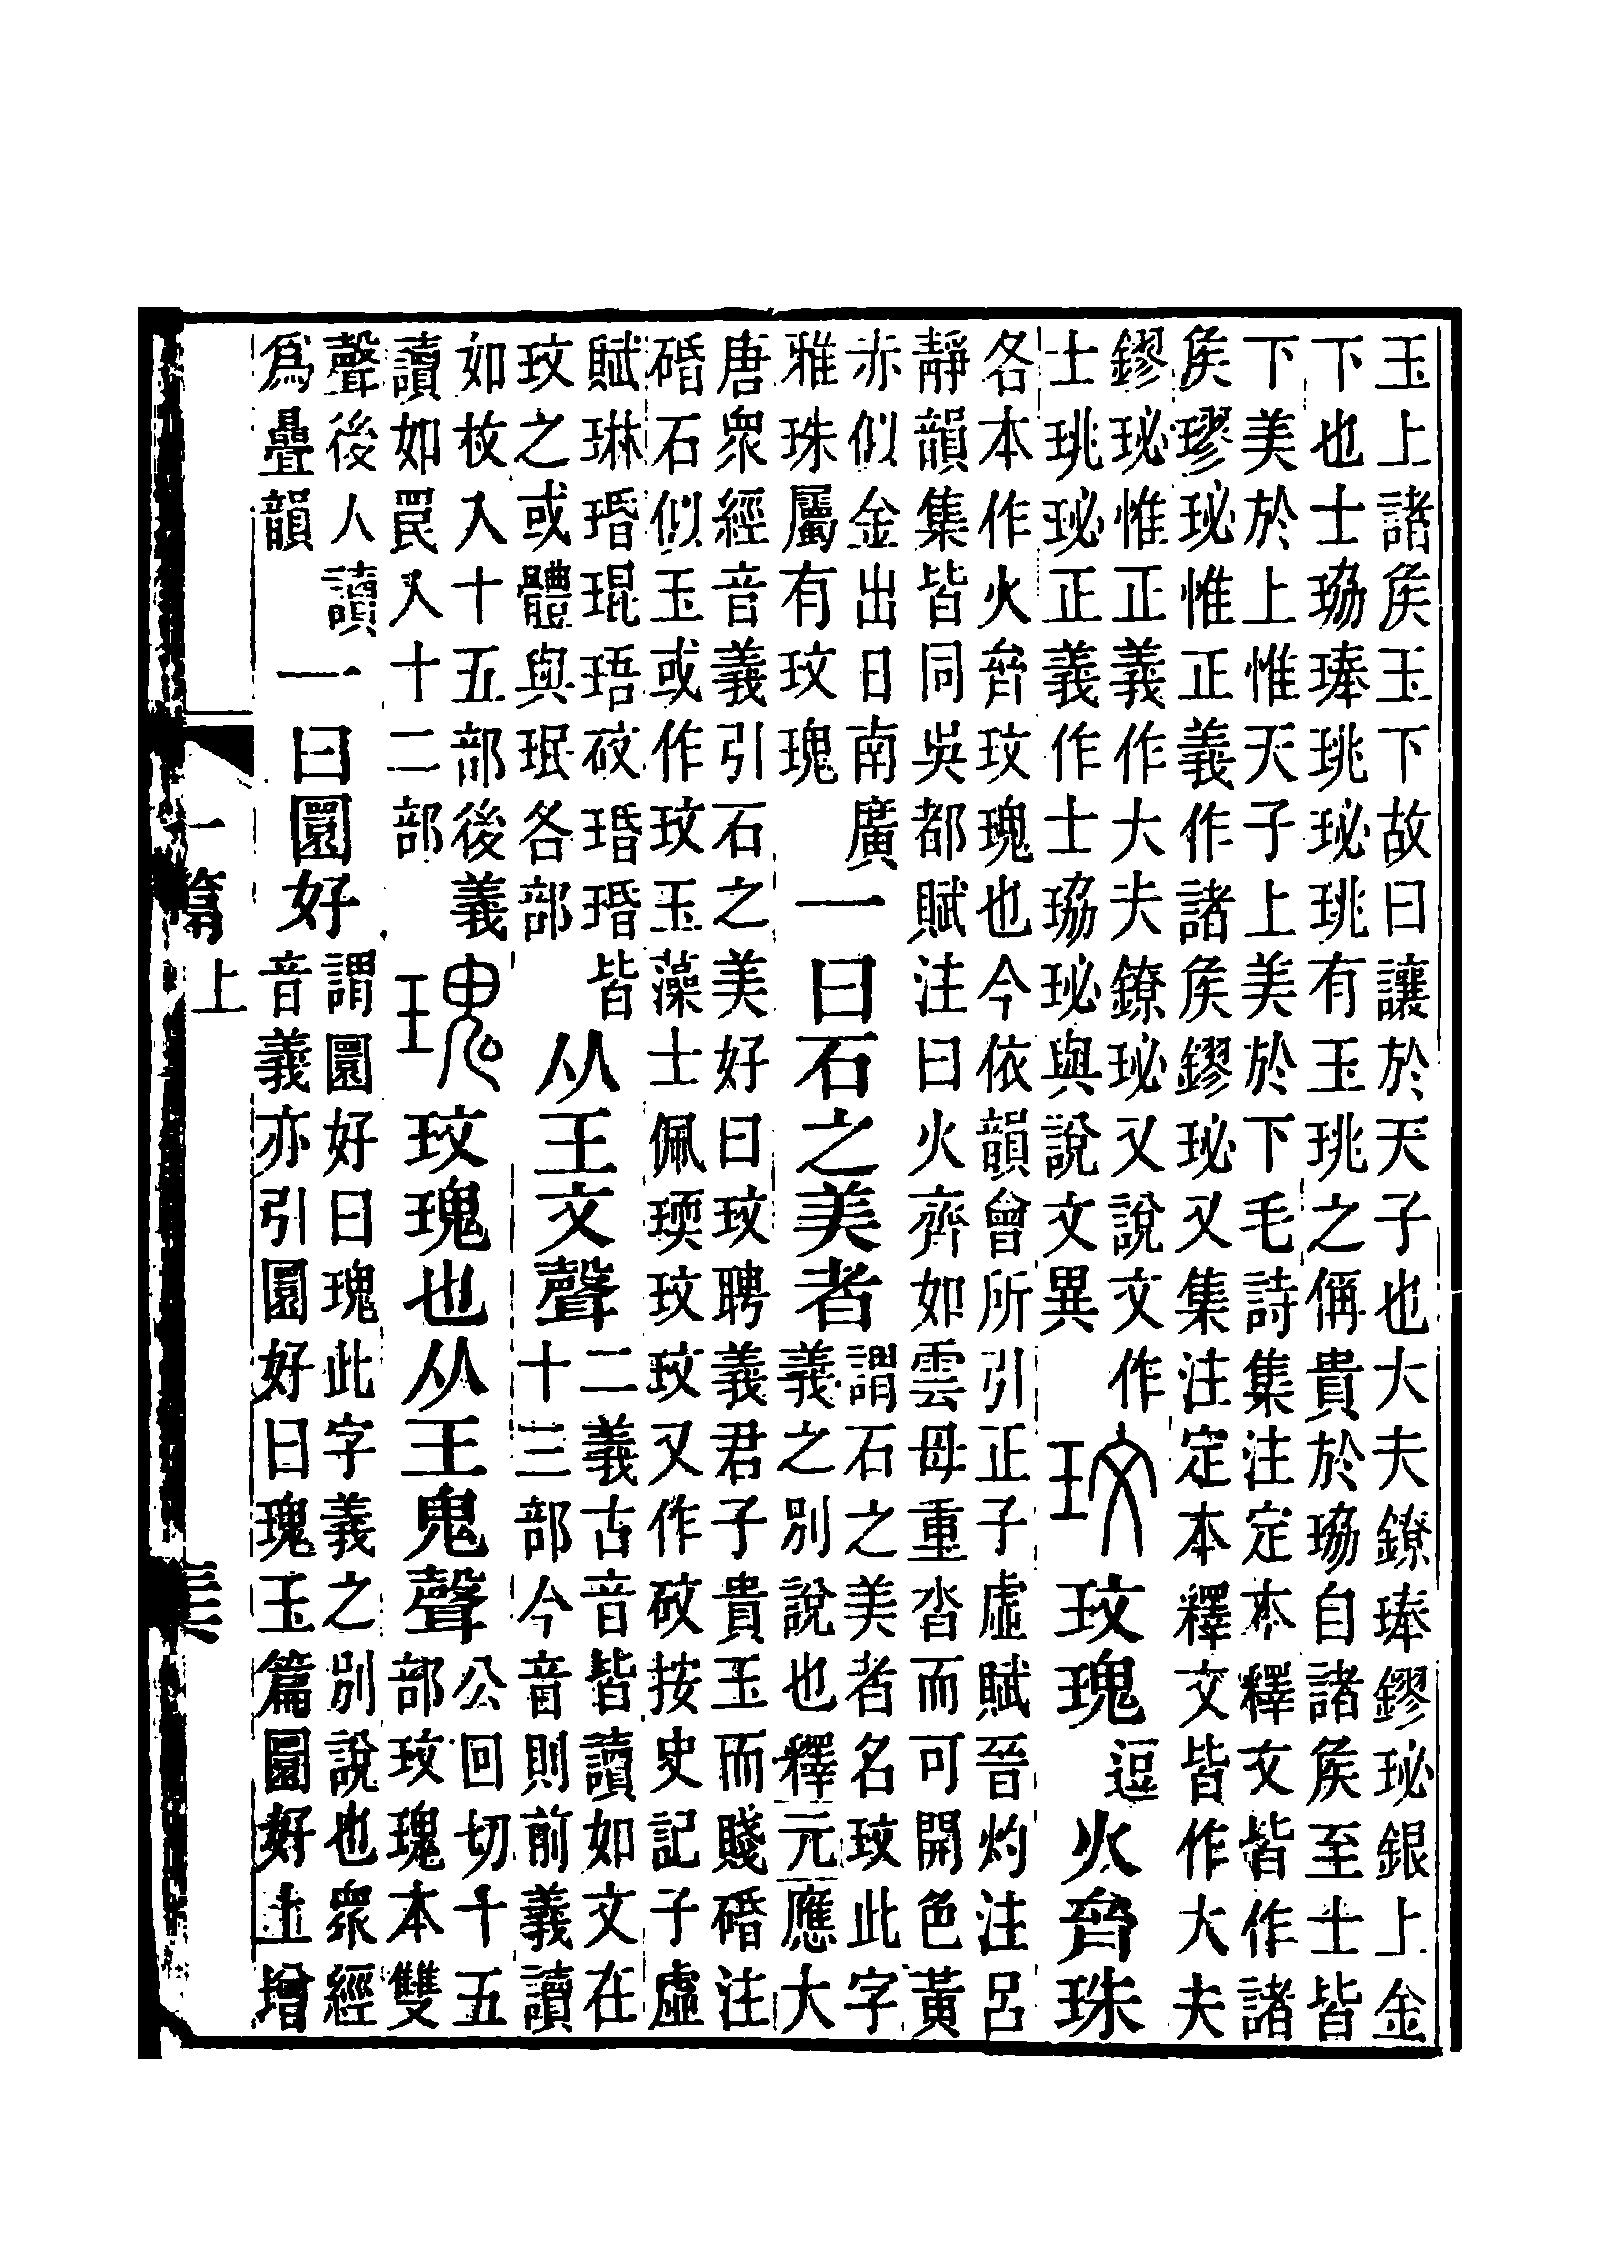 玉上諸矦玉下故曰讓於天子也大夫鐐琫鏐珌銀上金
下也士珕琫珧珌珧有玉珧之偁貴於珕自諸矦至士皆
下美於上惟天子上美於下毛詩集注定本釋文皆作諸
矦璆珌惟正義作諸矦鏐珌又集注定本釋文皆作大夫
鏐珌惟正義作大夫鐐珌又說文作
士珧珌正義作士珕珌與說文異
玟 玟瑰
逗
火齊珠
各本作火齊玟瑰也今依韻會所引正子虛賦晉灼注呂
靜韻集皆同吳都賦注曰火齊如雲母重沓而可開色黃
赤佀金出日南廣
雅珠屬有玟瑰
一曰石之美者
謂石之美者名玟此字
義之別說也釋元應大
唐衆經音義引石之美好曰玟聘義君子貴玉而賤碈注
碈石佀玉或作玟玉藻士佩瓀玟玟又作砇按史記子虛
賦琳瑉琨珸砇瑉瑉皆
玟之或體與珉各部
从王文聲
二義古音皆讀如文在
十三部今音則前義讀
如枚入十五部後義
讀如罠入十二部
瑰 玟瑰也从王鬼聲
公回切十五
部玟瑰本雙
聲後人讀
爲疊韻
一曰圜好
謂圜好曰瑰此字義之別說也衆經
音義亦引圜好曰瑰玉篇圜好上增
一篇上